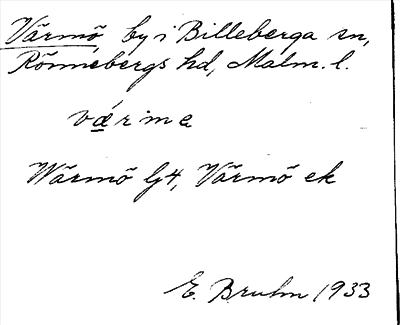 Värmö by i Billeberga sn,
Rönnebergs hd, Malm. l.
værmə
Wärmö Gj4, Värmö ek
E. Bruhn 1933